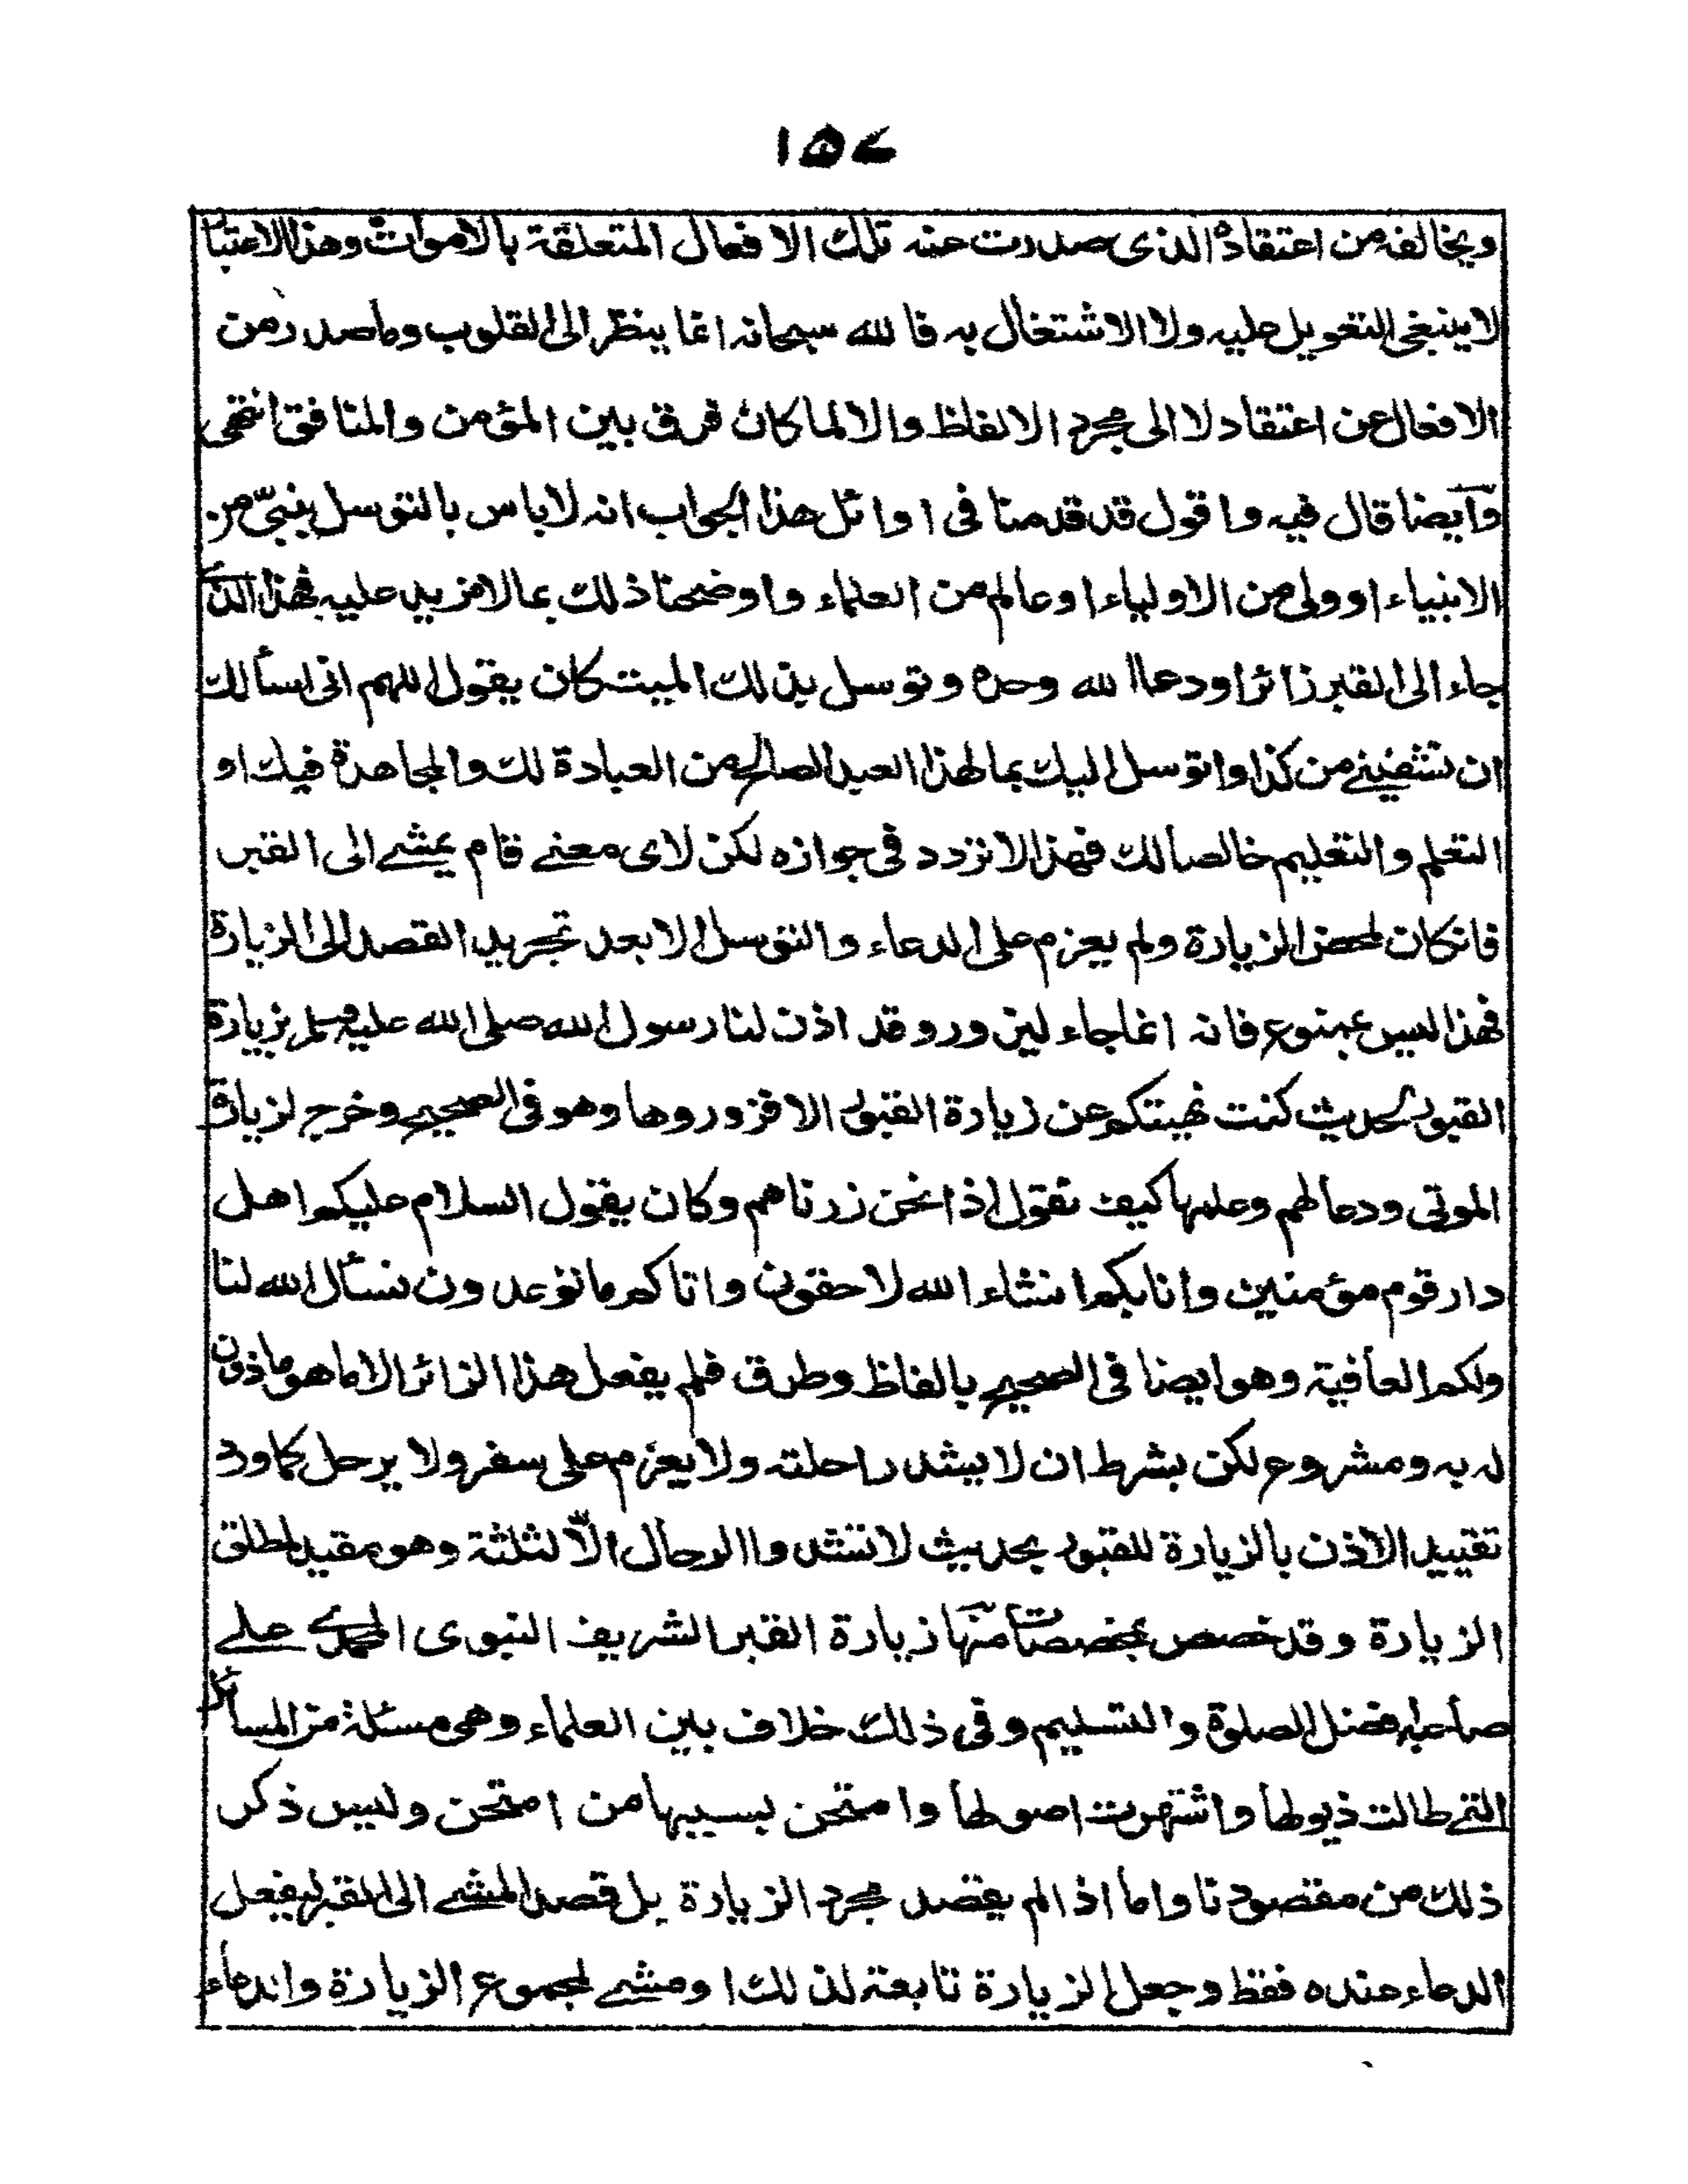 ١٥٧
ويخالفه من اعتقاده الذى صدرت عنه تلك الافعال المتعلقة بالاموات وهذا الاعتبار
لا ينبغى التعويل عليه ولا الاشتغال به فالله سبحانه انما ينظر الى القلوب وماصدر من
الافعال عن اعتقاد لا الى مجرد الالفاظ والا لما كان فرق بين المؤمن والمنافق انتهى
وايضا قال فيه واقول قد قدمنا فى اوائل هذا الجواب انه لاباس بالتوسل بنبى من
الانبياء او ولى من الاولياء او عالم من العلماء واوضحنا ذلك بما لامزيد عليه فهذا الذى
جاء الى القبر زائرا ودعا الله وحده وتوسل بذلك الميت كان يقول اللهم انى اسألك
ان تشفينى من كذا واتوسل اليك بما لهذا العبد الصالح من العبادة لك والمجاهدة فيك او
التعلم والتعليم خالصا لك فهذا لا تردد فى جوازه لكن لاى معنے قام يمشے الى القبر
فانكان لمحض الزيارة ولم يعزم على الدعاء والتوسل الا بعد تجريد القصد الى الزيارة
فهذا ليس بممنوع فانه انما جاء ليزور وقد اذن لنا رسول الله صلى الله عليه وسلم بزيارة
القبور لحديث كنت نهيتكم عن زيارة القبور الا فزوروها وهو فى الصحيح وخرج لزيارة
الموتى ودعا لهم وعلمها كيف تقول اذا نحن زرناهم وكان يقول السلام عليكم اهل
دار قوم مؤمنين وانا بكم انشاء الله لاحقون واتاكم ما توعدون نسأل الله لنا
ولكم العافية وهو ايضا فى الصحيح بالفاظ وطرق فلم يفعل هذا الزائر الا ما هو ماذون
له به ومشروع لكن بشرط ان لا يشد راحلته ولا يعزم على سفر ولا يرحل كما ورد
تقييد الاذن بالزيارة للقبور بحديث لا تشدوا الرحال الّا لثلثة وهو مقيد لمطلق
الزيارة وقد خصص بمخصصات منها زيارة القبر الشريف النبوى المحمدے علے
صاحبه افضل الصلوة والتسليم وفى ذلك خلاف بين العلماء وهى مسئلة من المسائل
التے طالت ذيولها واشتهرت اصولها وامتحن بسببها من امتحن وليس ذكر
ذلك من مقصودنا واما اذا لم يقصد مجرد الزيارة بل قصد المشے الى القبر ليفعل
الدعاء عنده فقط وجعل الزيارة تابعة لذلك او مشے لمجموع الزيارة والدعاء